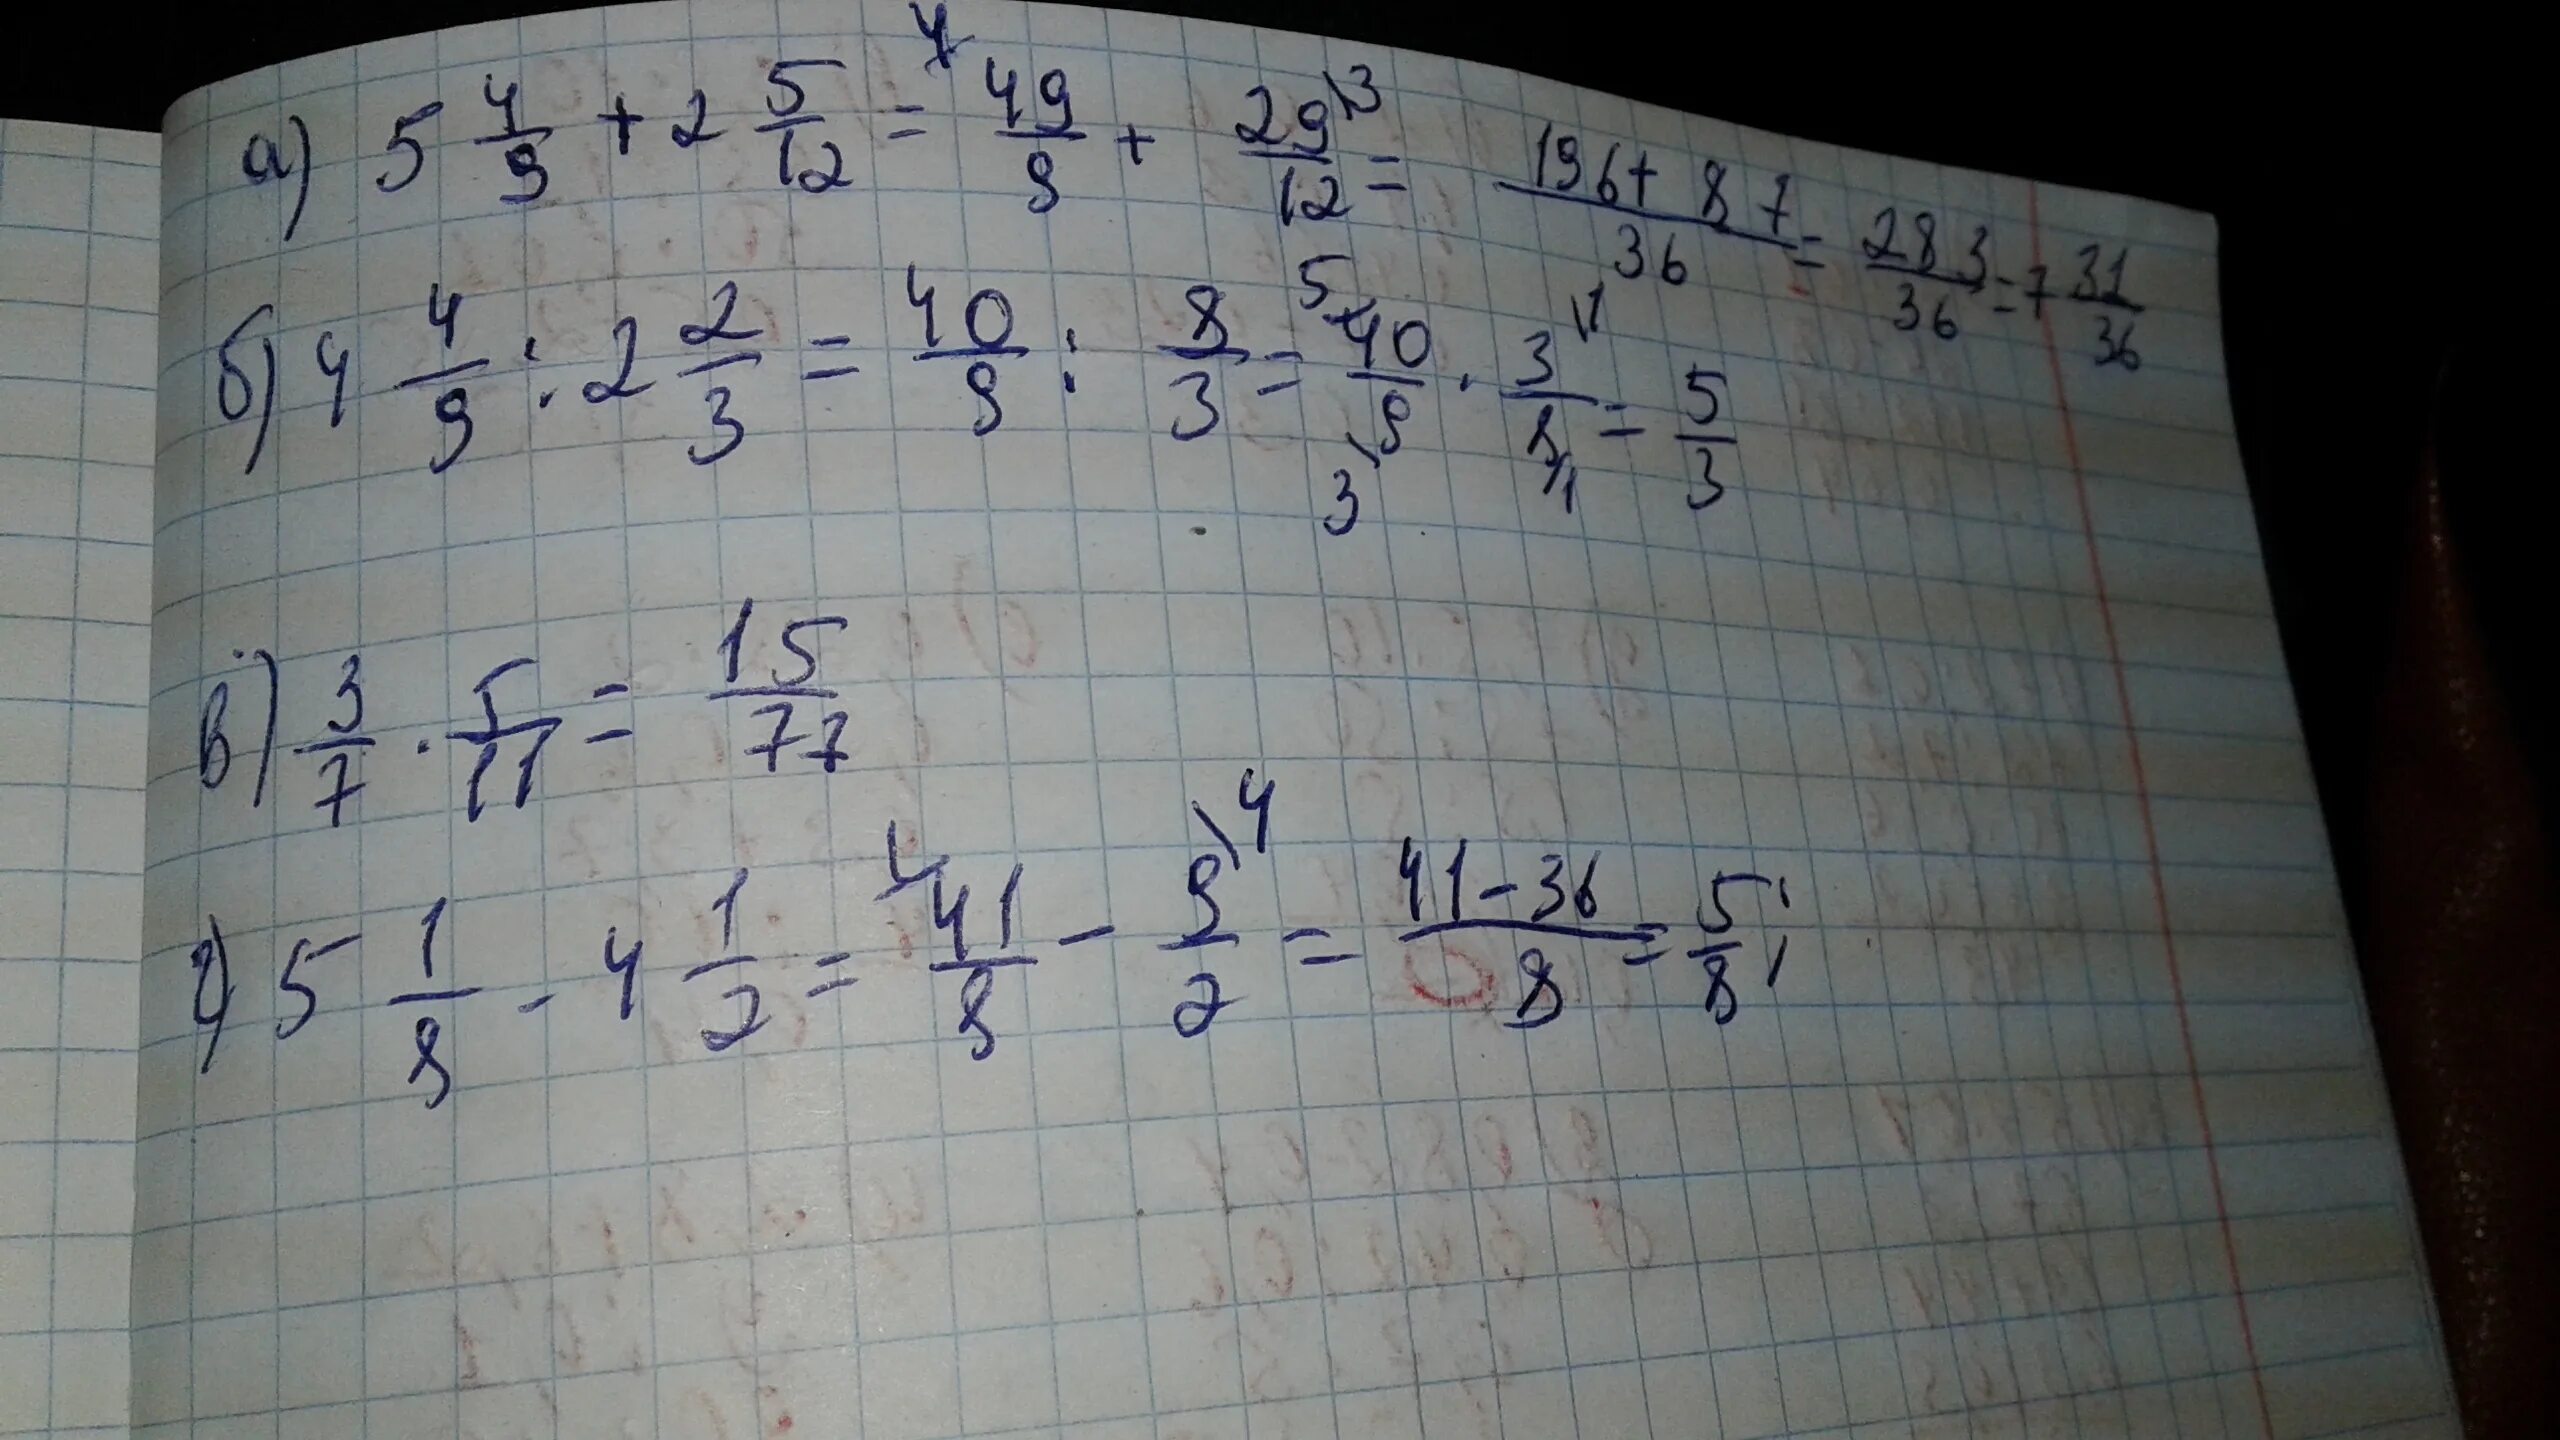 а) 5 4/9 + 2 5/12 = 4 49/9 + 29/12 3 = (196 + 87)/36 = 283/36 = 7 31/36
б) 4 4/9 : 2 2/3 = 40/9 : 8/3 = 5 40/9 3 · 3/8 1 1 = 5/3
в) 3/7 · 5/11 = 15/77
г) 5 1/8 - 4 1/2 = 41/8 - 9/2 4 = (41 - 36)/8 = 5/8